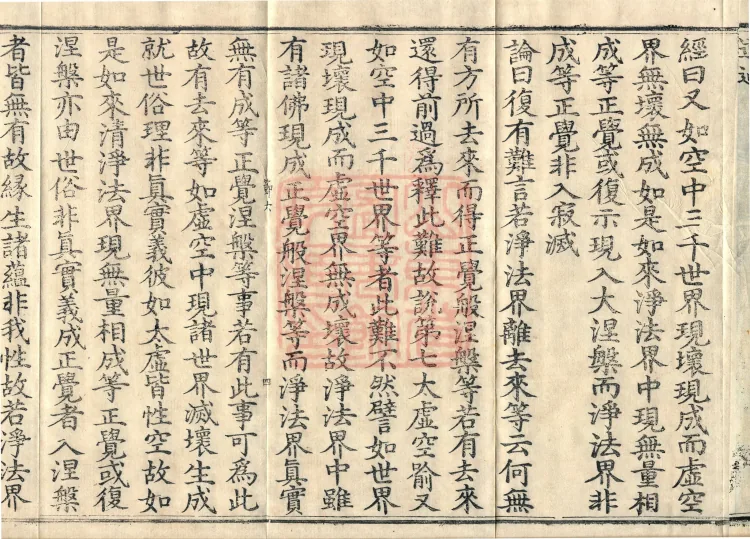 經曰又如空中三千世界現壞現成而虛空
界無壞無成如是如來淨法界中現無量相
成等正覺或復示現入大涅槃而淨法界非
成等正覺非入寂滅
論曰復有難言若淨法界離去來等云何無
有方所去來而得正覺般涅槃等若有去來
還得前過爲釋此難故說第七大虛空喻又
如空中三千世界等者此難不然譬如世界
現壞現成而虛空界無成壞故淨法界中雖
有諸佛現成正覺般涅槃等而淨法界眞實
四
無有成等正覺涅槃等事若有此事可爲此
故有去來等如虛空中現諸世界滅壞生成
就世俗理非眞實義彼如太虛皆性空故如
是如來清淨法界現無量相成等正覺或復
涅槃亦由世俗非眞實義成正覺者入涅槃
者皆無有故緣生諸蘊非我性故若淨法界